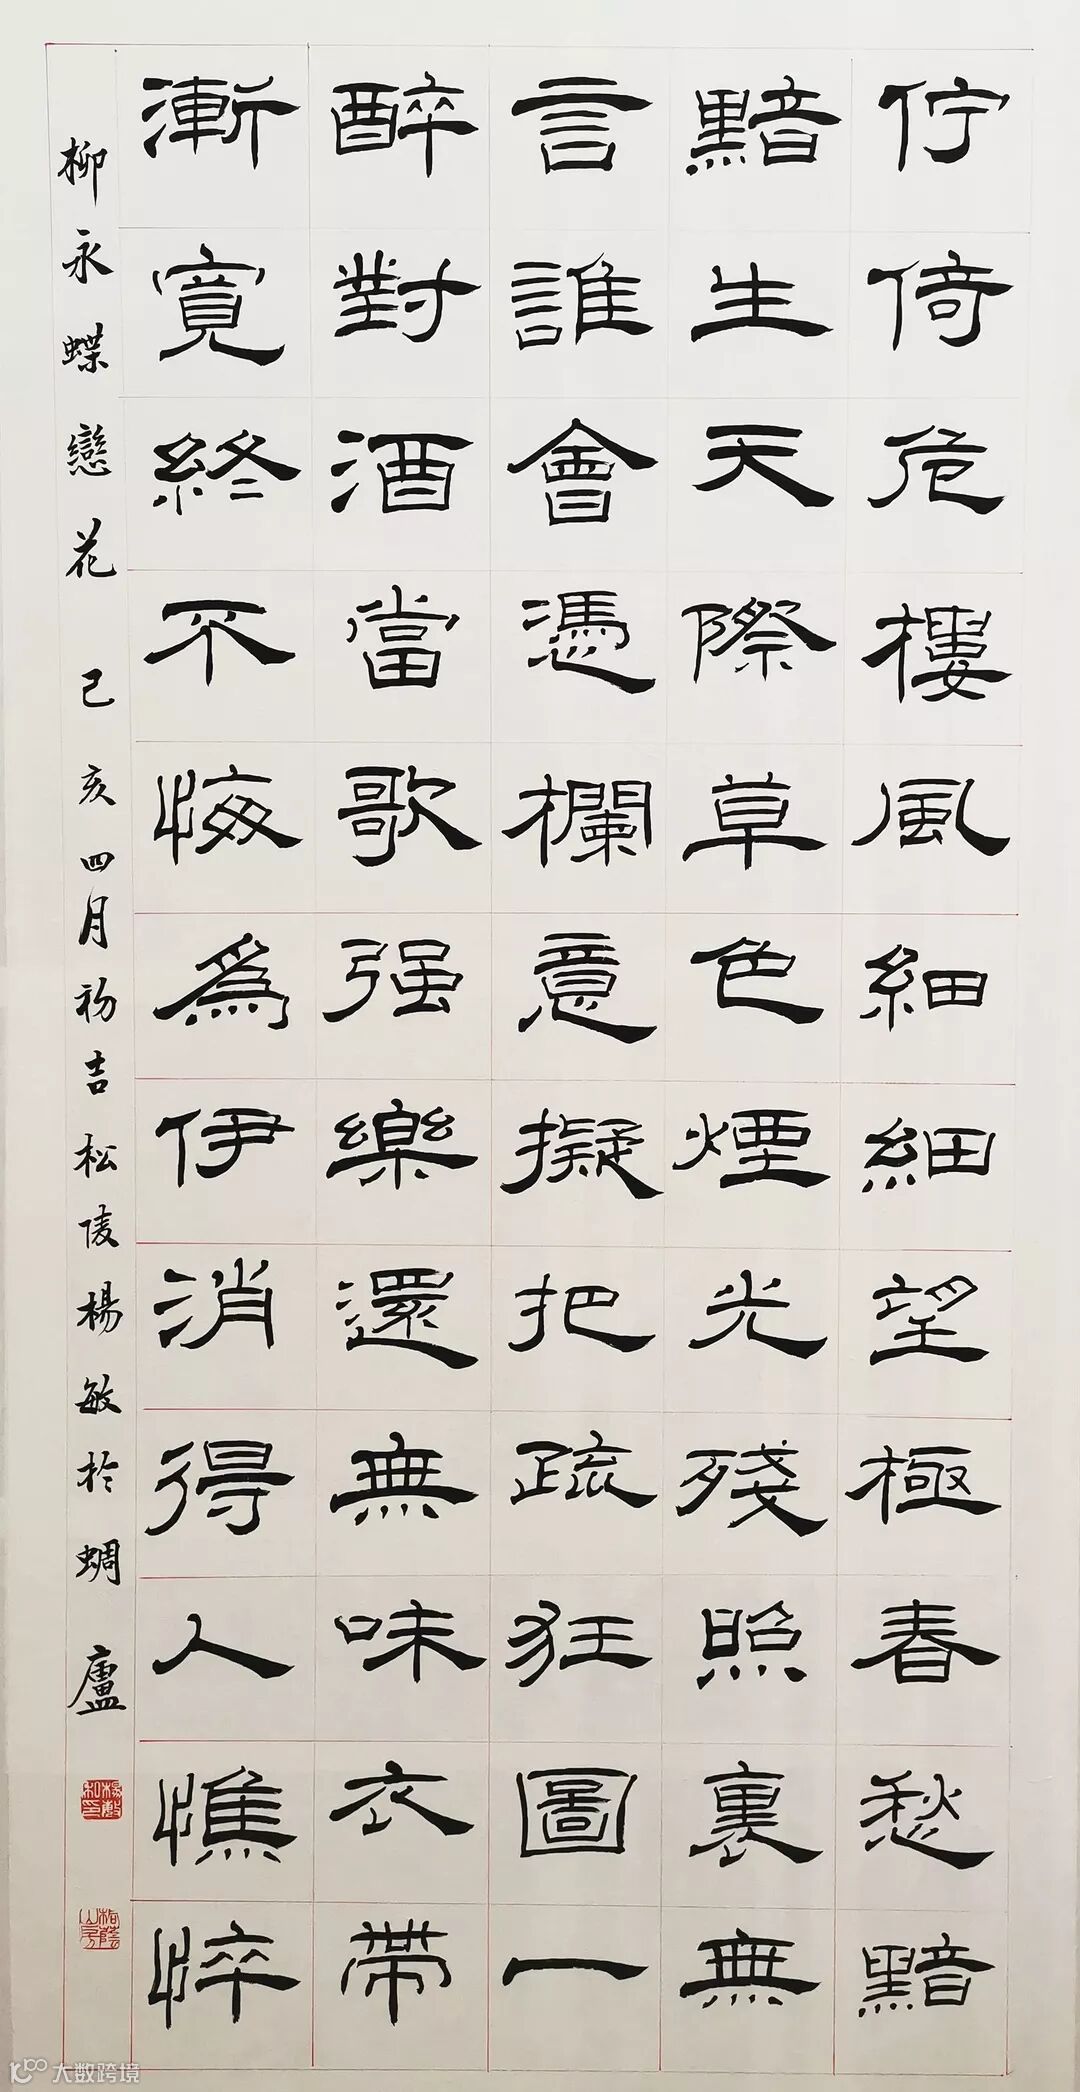 佇倚危樓風細細望極春愁黯
黯生天際草色煙光殘照裏無
言誰會憑欄意擬把疏狂圖一
醉對酒當歌强樂還無味衣帶
漸寬終不悔爲伊消得人憔悴
柳永蝶戀花 己亥四月初吉松陵楊敏於蜩廬
大数跨境